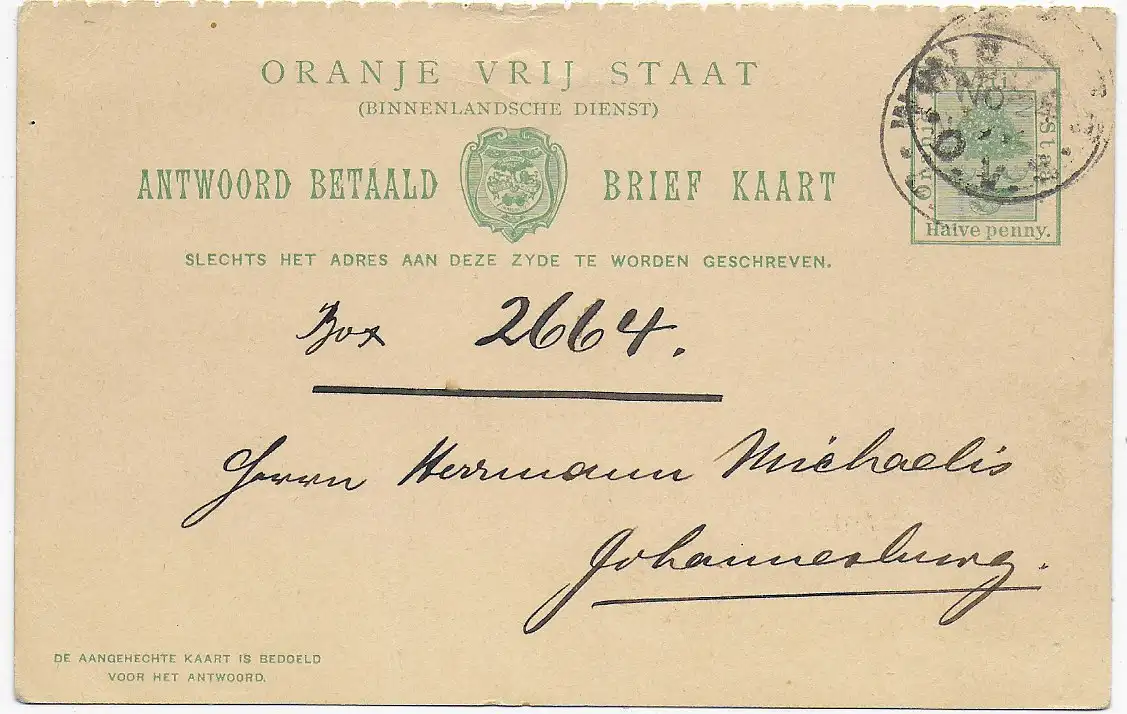 ORANJE VRIJ STAAT
(BINNENLANDSCHE DIENST)
ANTWOORD BETAALD BRIEF KAART
SLECHTS HET ADRES AAN DEZE ZYDE TE WORDEN GESCHREVEN.
NO
Halve penny.
Box 2664.
Herrn Herrmann Michaelis
Johannesburg.
DE AANGEHECHTE KAART IS BEDOELD
VOOR HET ANTWOORD.